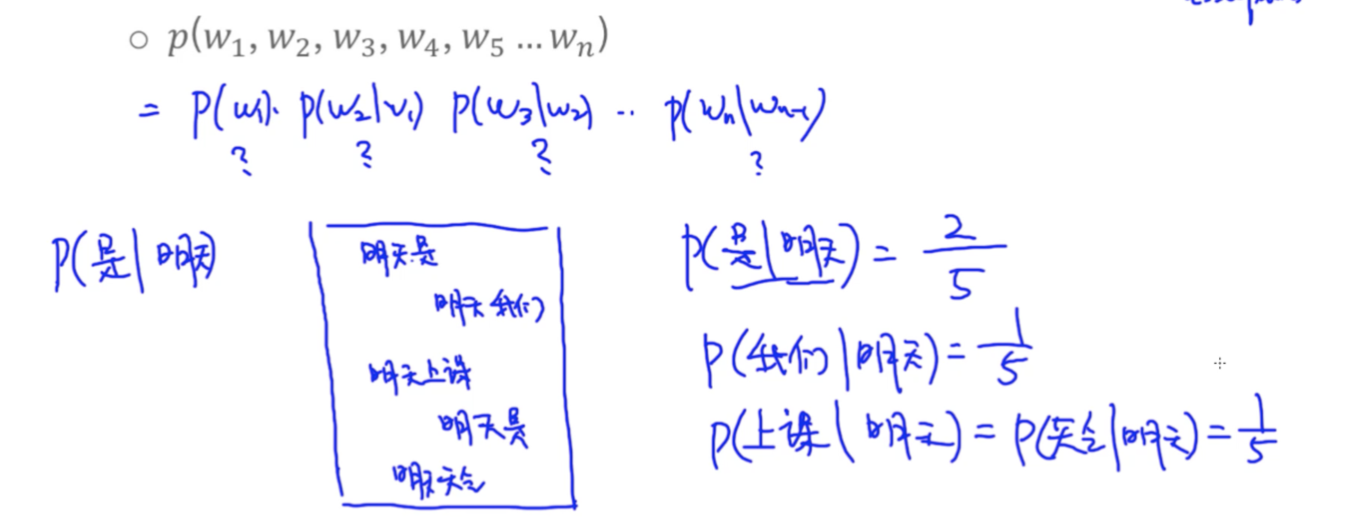 ○ p(w₁, w₂, w₃, w₄, w₅ … wₙ)
= p(w₁)· p(w₂|w₁) p(w₃|w₂) ·· p(wₙ|wₙ₋₁)
? ? ? ?
p(是|明天)
明天是
明天我们
明天上课
明天是
明天会
p(是|明天) = 2/5
p(我们|明天) = 1/5
p(上课|明天) = p(会|明天) = 1/5